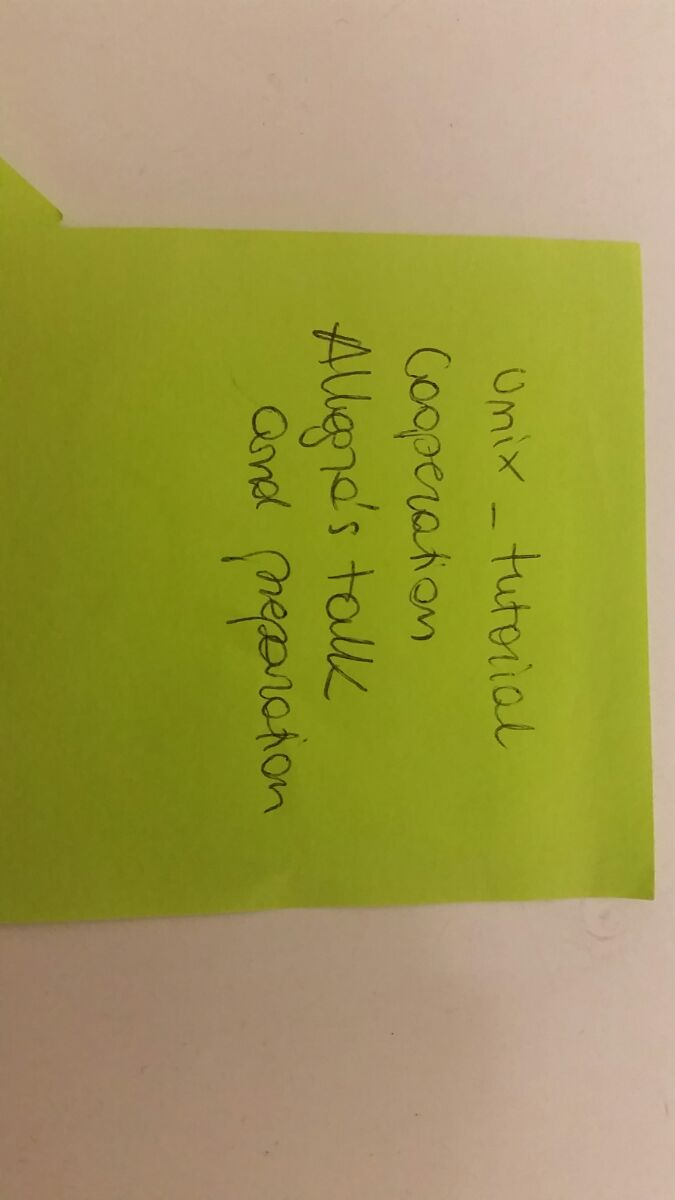 Unix - tutorial
Cooperation
Allegra's talk
and preparation